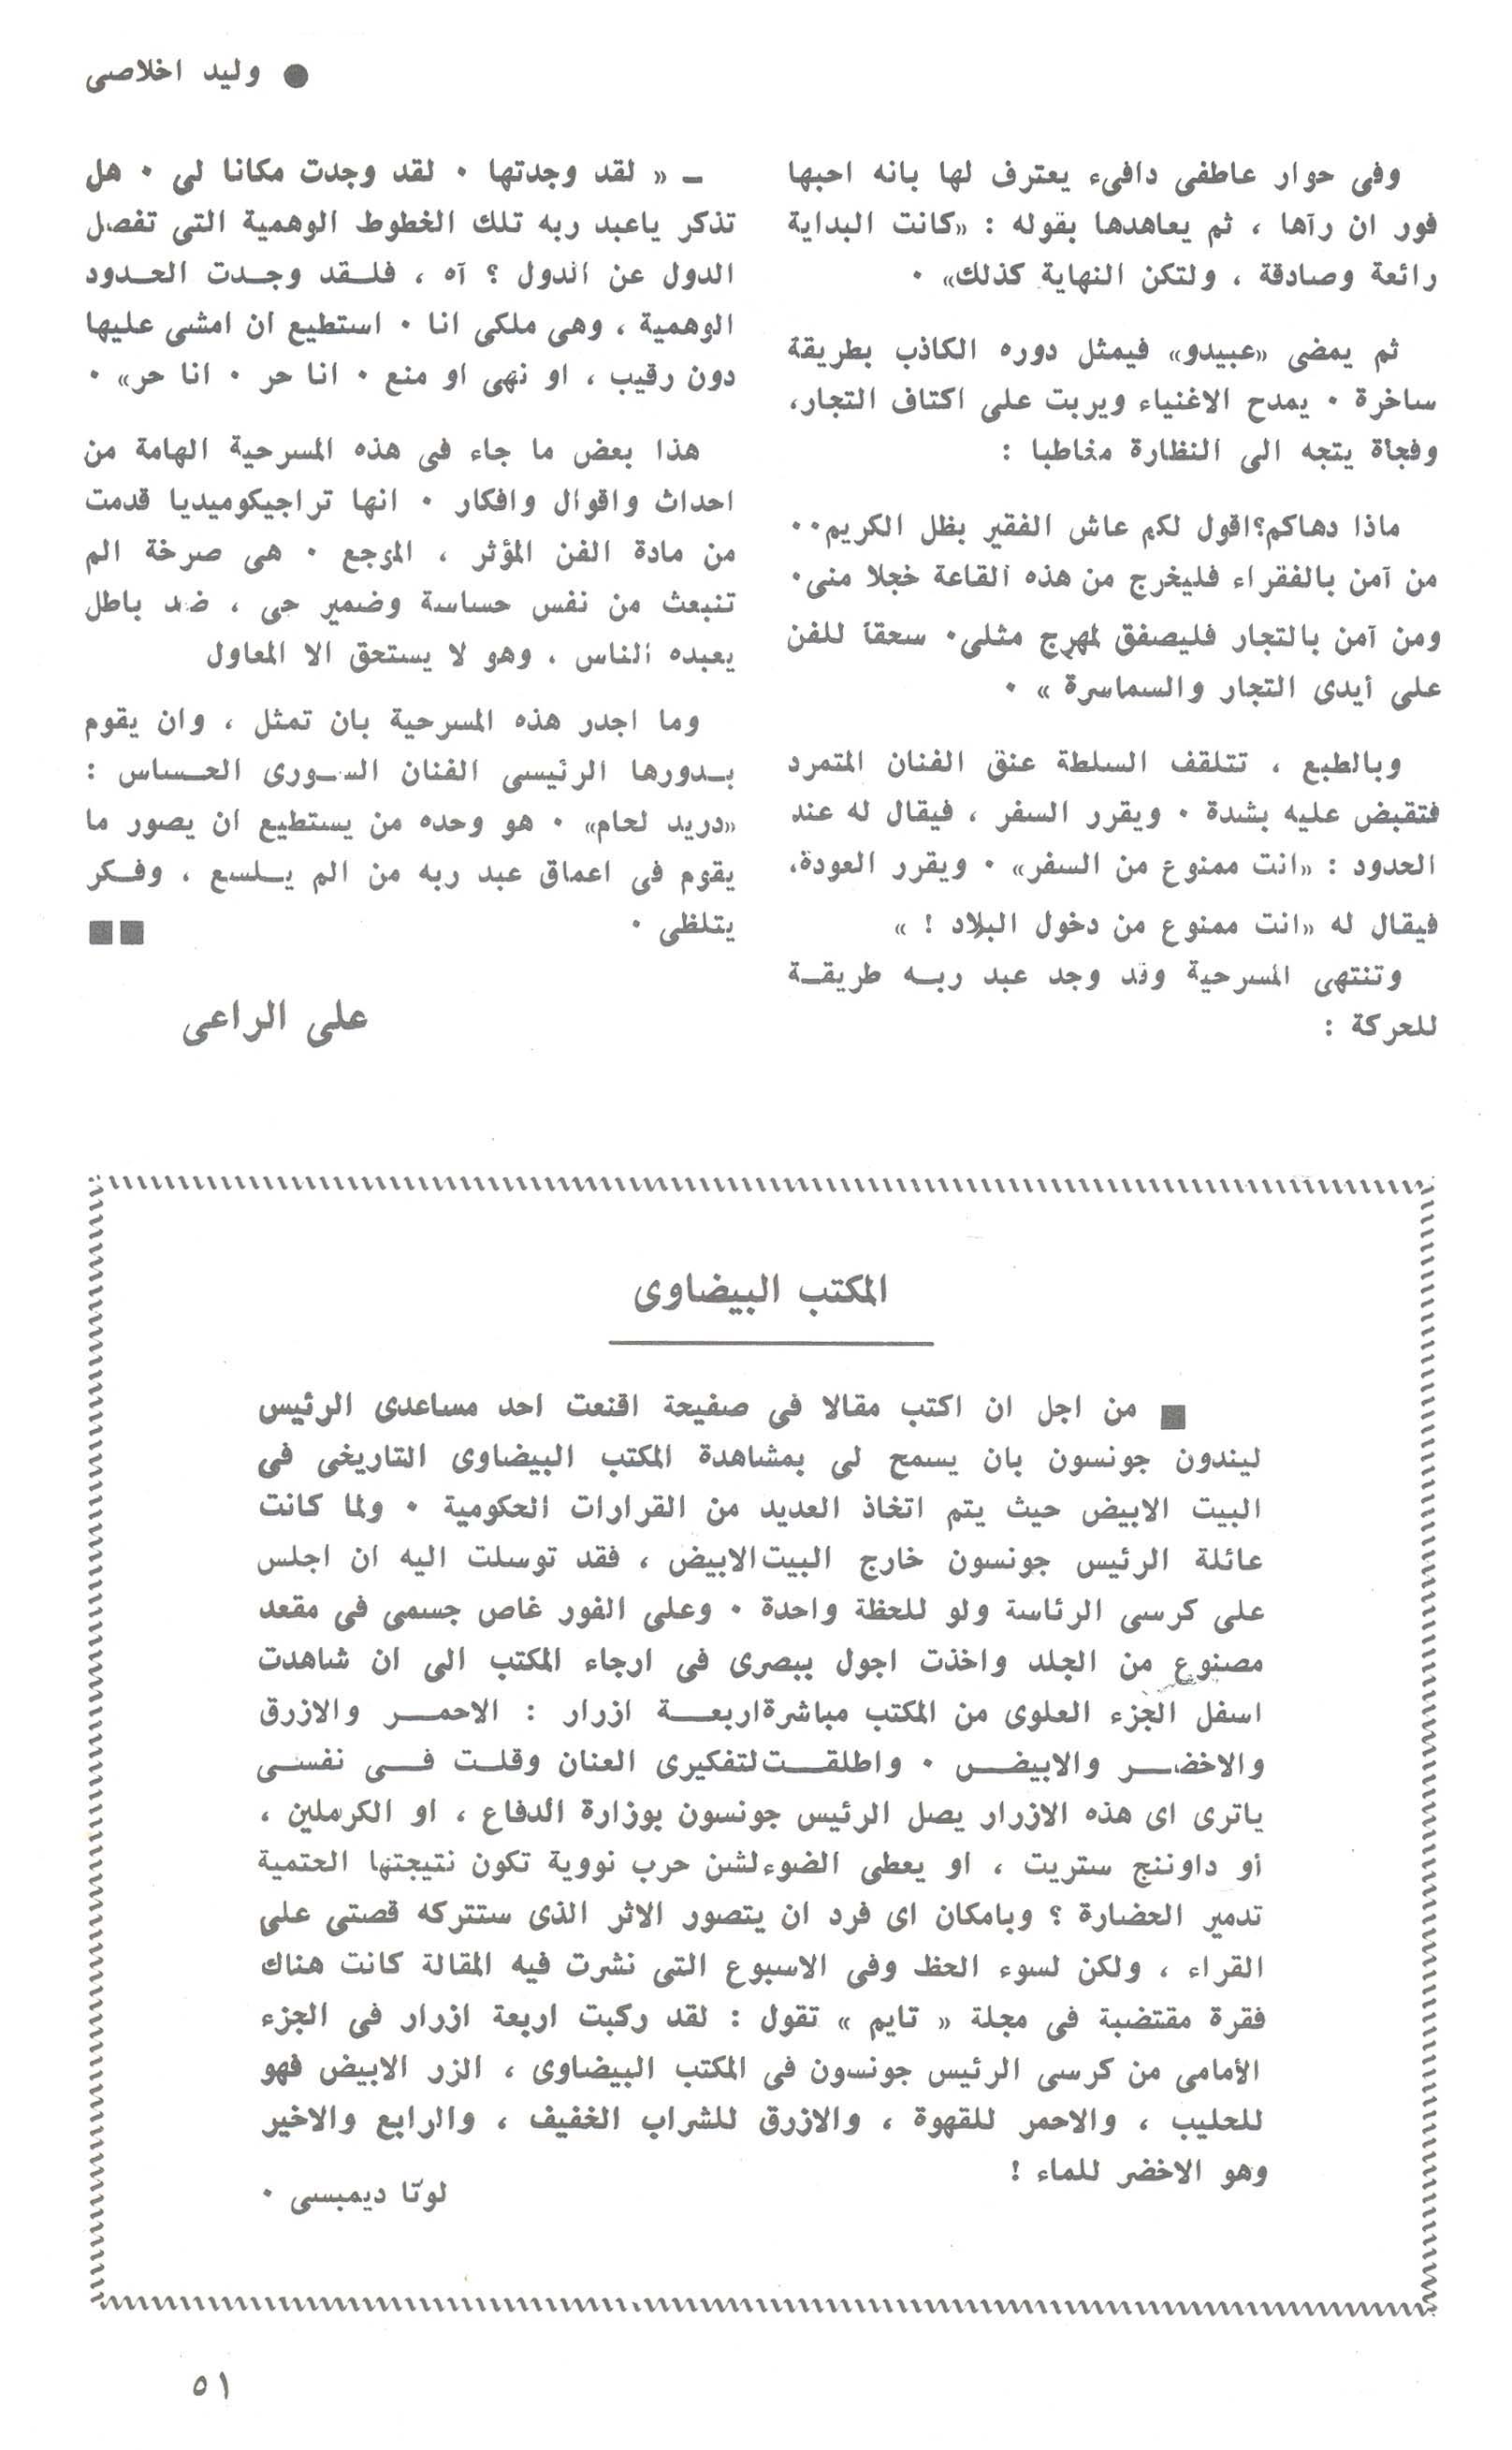 ● وليد اخلاصى
وفى حوار عاطفى دافىء يعترف لها بانه احبها
فور ان رآها ، ثم يعاهدها بقوله : «كانت البداية
رائعة وصادقة ، ولتكن النهاية كذلك» ٠
ثم يمضى «عبيدو» فيمثل دوره الكاذب بطريقة
ساخرة ٠ يمدح الاغنياء ويربت على اكتاف التجار،
وفجأة يتجه الى النظارة مخاطبا :
ماذا دهاكم؟اقول لكم عاش الفقير بظل الكريم٠٠
من آمن بالفقراء فليخرج من هذه القاعة خجلا منى٠
ومن آمن بالتجار فليصفق لمهرج مثلى٠ سحقا للفن
على أيدى التجار والسماسرة » ٠
وبالطبع ، تتلقف السلطة عنق الفنان المتمرد
فتقبض عليه بشدة ٠ ويقرر السفر ، فيقال له عند
الحدود : «انت ممنوع من السفر» ٠ ويقرر العودة،
فيقال له «انت ممنوع من دخول البلاد ! »
وتنتهى المسرحية وقد وجد عبد ربـه طريقـة
للحركة :
ـ « لقد وجدتها ٠ لقد وجدت مكانا لى ٠ هل
تذكر ياعبد ربه تلك الخطوط الوهمية التى تفصل
الدول عن الدول ؟ آه ، فلـقد وجـدت الحـدود
الوهمية ، وهى ملكى انا ٠ استطيع ان امشى عليها
دون رقيب ، او نهى او منع ٠ انا حر ٠ انا حر» ٠
هذا بعض ما جاء فى هذه المسرحية الهامة من
احداث واقوال وافكار ٠ انها تراجيكوميديا قدمت
من مادة الفن المؤثر ، الموجع ٠ هى صرخة الم
تنبعث من نفس حساسة وضمير حى ، ضد باطل
يعبده الناس ، وهو لا يستحق الا المعاول
وما اجدر هذه المسرحية بان تمثل ، وان يقوم
بـدورها الرئيسى الفنان السـورى الحـساس :
«دريد لحام» ٠ هو وحده من يستطيع ان يصور ما
يقوم فى اعماق عبد ربه من الم يـلسع ، وفـكر
يتلظى ٠ ■■
على الراعى
المكتب البيضاوى
■ من اجل ان اكتب مقالا فى صفيحة اقنعت احد مساعدى الرئيس
ليندون جونسون بان يسمح لى بمشاهدة المكتب البيضاوى التاريخى فى
البيت الابيض حيث يتم اتخاذ العديد من القرارات الحكومية ٠ ولما كانت
عائلة الرئيس جونسون خارج البيت الابيض ، فقد توسلت اليه ان اجلس
على كرسى الرئاسة ولو للحظة واحدة ٠ وعلى الفور غاص جسمى فى مقعد
مصنوع من الجلد واخذت اجول ببصرى فى ارجاء المكتب الى ان شاهدت
اسفل الجزء العلوى من المكتب مباشرة اربعـــة ازرار : الاحمـــر والازرق
والاخضـــر والابيـــض ٠ واطلقـــت لتفكيرى العنان وقلـت فـــى نفســى
ياترى اى هذه الازرار يصل الرئيس جونسون بوزارة الدفاع ، او الكرملين ،
أو داوننج ستريت ، او يعطى الضوء لشن حرب نووية تكون نتيجتها الحتمية
تدمير الحضارة ؟ وبامكان اى فرد ان يتصور الاثر الذى ستتركه قصتى على
القراء ، ولكن لسوء الحظ وفى الاسبوع التى نشرت فيه المقالة كانت هناك
فقرة مقتضبة فى مجلة « تايم » تقول : لقد ركبت اربعة ازرار فى الجزء
الأمامى من كرسى الرئيس جونسون فى المكتب البيضاوى ، الزر الابيض فهو
للحليب ، والاحمر للقهوة ، والازرق للشراب الخفيف ، والرابع والاخير
وهو الاخضر للماء !
لوتا ديمبسى ٠
٥١